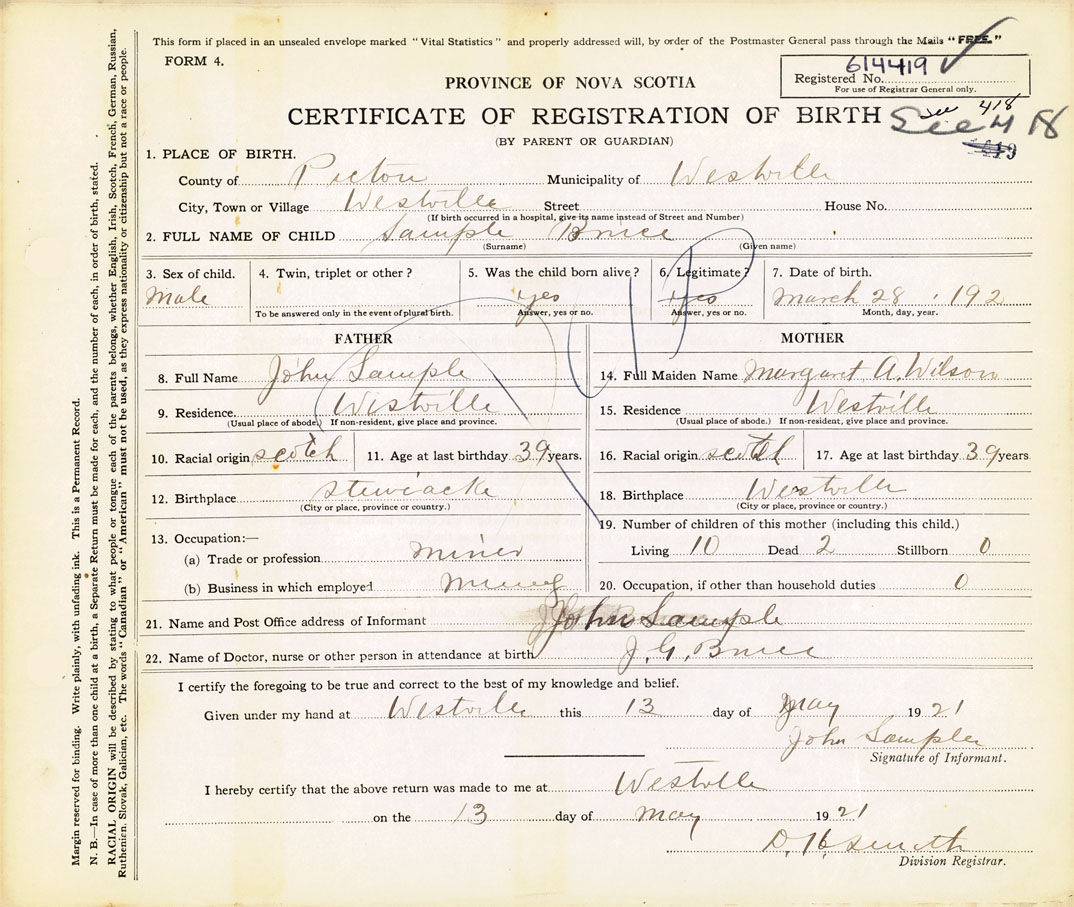 This form if placed in an unsealed envelope marked "Vital Statistics" and properly addressed will, by order of the Postmaster General pass through the Mails "FREE."
FORM 4.
614419
Registered No.
For use of Registrar General only.
PROVINCE OF NOVA SCOTIA
CERTIFICATE OF REGISTRATION OF BIRTH
See 418
See 418
(BY PARENT OR GUARDIAN)
1. PLACE OF BIRTH.
County of Pictou Municipality of Westville
City, Town or Village Westville Street House No.
(If birth occurred in a hospital, give its name instead of Street and Number)
2. FULL NAME OF CHILD Sample Bruce
(Surname) (Given name)
3. Sex of child. 4. Twin, triplet or other? 5. Was the child born alive? 6. Legitimate? 7. Date of birth.
Male yes yes March 28, 192
To be answered only in the event of plural birth. Answer, yes or no. Answer, yes or no. Month, day, year.
FATHER MOTHER
8. Full Name John Sample 14. Full Maiden Name Margaret A. Wilson
9. Residence. Westville 15. Residence Westville
(Usual place of abode.) If non-resident, give place and province. (Usual place of abode.) If non-resident, give place and province.
10. Racial origin scotch 11. Age at last birthday 39 years. 16. Racial origin scotch 17. Age at last birthday 39 years
12. Birthplace stewiacke 18. Birthplace Westville
(City or place, province or country.) (City or place, province or country.)
13. Occupation:— 19. Number of children of this mother (including this child.)
(a) Trade or profession miner Living 10 Dead 2 Stillborn 0
(b) Business in which employed Mining 20. Occupation, if other than household duties 0
21. Name and Post Office address of Informant John Sample
22. Name of Doctor, nurse or other person in attendance at birth J. G. Bruce
I certify the foregoing to be true and correct to the best of my knowledge and belief.
Given under my hand at Westville this 13 day of May 1921
John Sample
Signature of Informant.
I hereby certify that the above return was made to me at Westville
on the 13 day of May 1921
D. H. Smith
Division Registrar.
Margin reserved for binding. Write plainly, with unfading ink. This is a Permanent Record.
N. B.—In case of more than one child at a birth, a Separate Return must be made for each, and the number of each, in order of birth, stated.
RACIAL ORIGIN will be described by stating to what people or tongue each of the parents belongs, whether English, Irish, Scotch, French, German, Russian,
Ruthenien, Slovak, Galician, etc. The words "Canadian" or "American" must not be used, as they express nationality or citizenship but not a race or people.